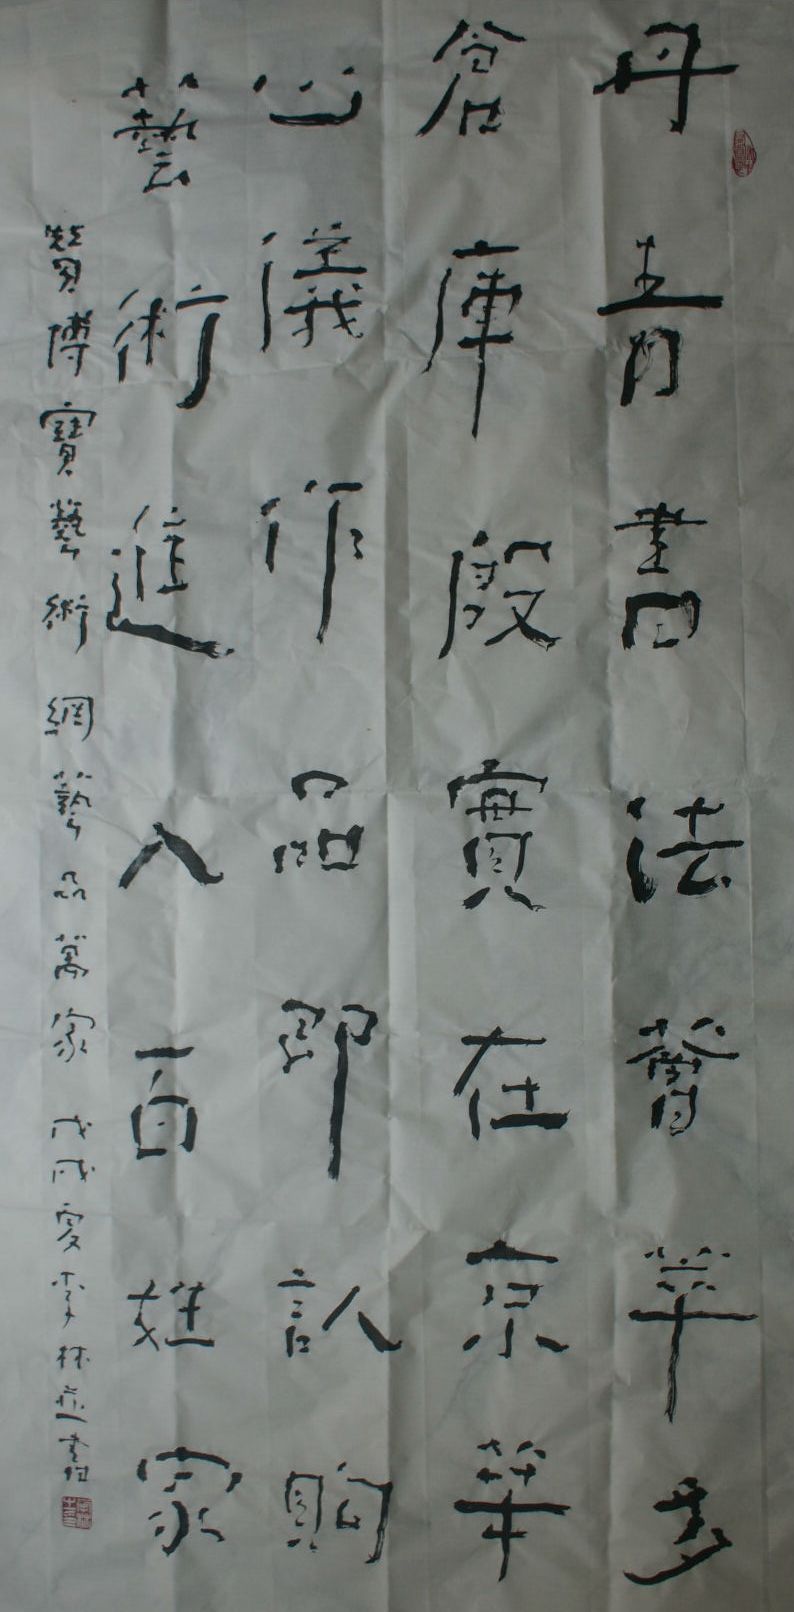 丹青書法薈萃多
倉庫殷實在京華
心儀作品即认购
藝術進入百姓家
贊博寶藝術網藝品萬家 戊戌夏李林並書